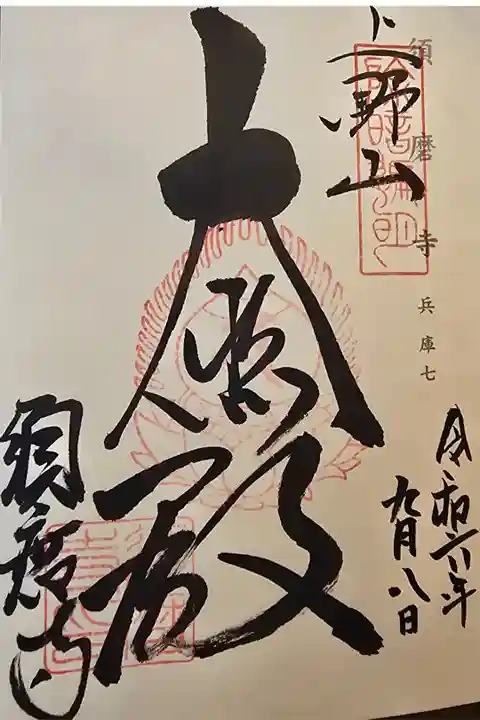 須磨寺 兵庫七
上野山
大悲殿
須磨寺
令和六年
九月八日